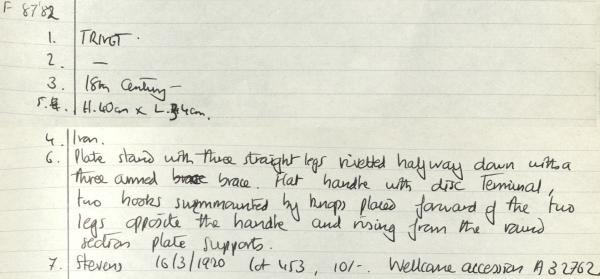 F 8782
1. TRIVET.
2. —
3. 18th Century —
5. H. 40cm x L. 34cm.
4. Iron.
6. Plate stand with three straight legs rivetted halfway down with a
three armed brace. Flat handle with disc terminal,
two hooks surmounted by knops placed forward of the two
legs opposite the handle and rising from the round
section plate supports.
7. Stevens 16/3/1920 lot 453, 10/-. Wellcome accession A 32762